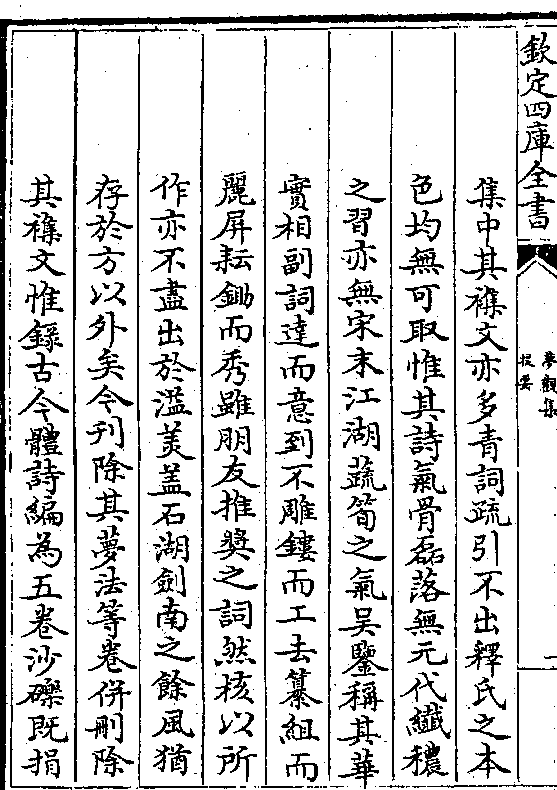 欽定四庫全書
夢觀集
提要
一
集中其襍文亦多青詞疏引不出釋氏之本
色均無可取惟其詩氣骨磊落無元代纖穠
之習亦無宋末江湖蔬筍之氣吴鑒稱其華
實相副詞達而意到不雕鏤而工去纂組而
麗屏耘鋤而秀雖朋友推奬之詞然核以所
作亦不盡出於溢美盖石湖劍南之餘風猶
存於方以外矣今刋除其夢法等卷併刪除
其襍文惟錄古今體詩編為五卷沙礫既捐